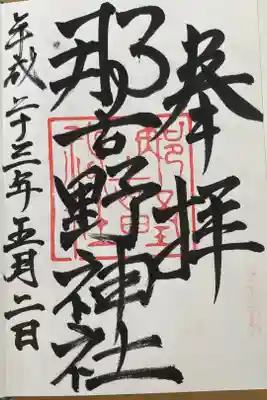 奉拝
那古野神社
平成二十三年五月二日